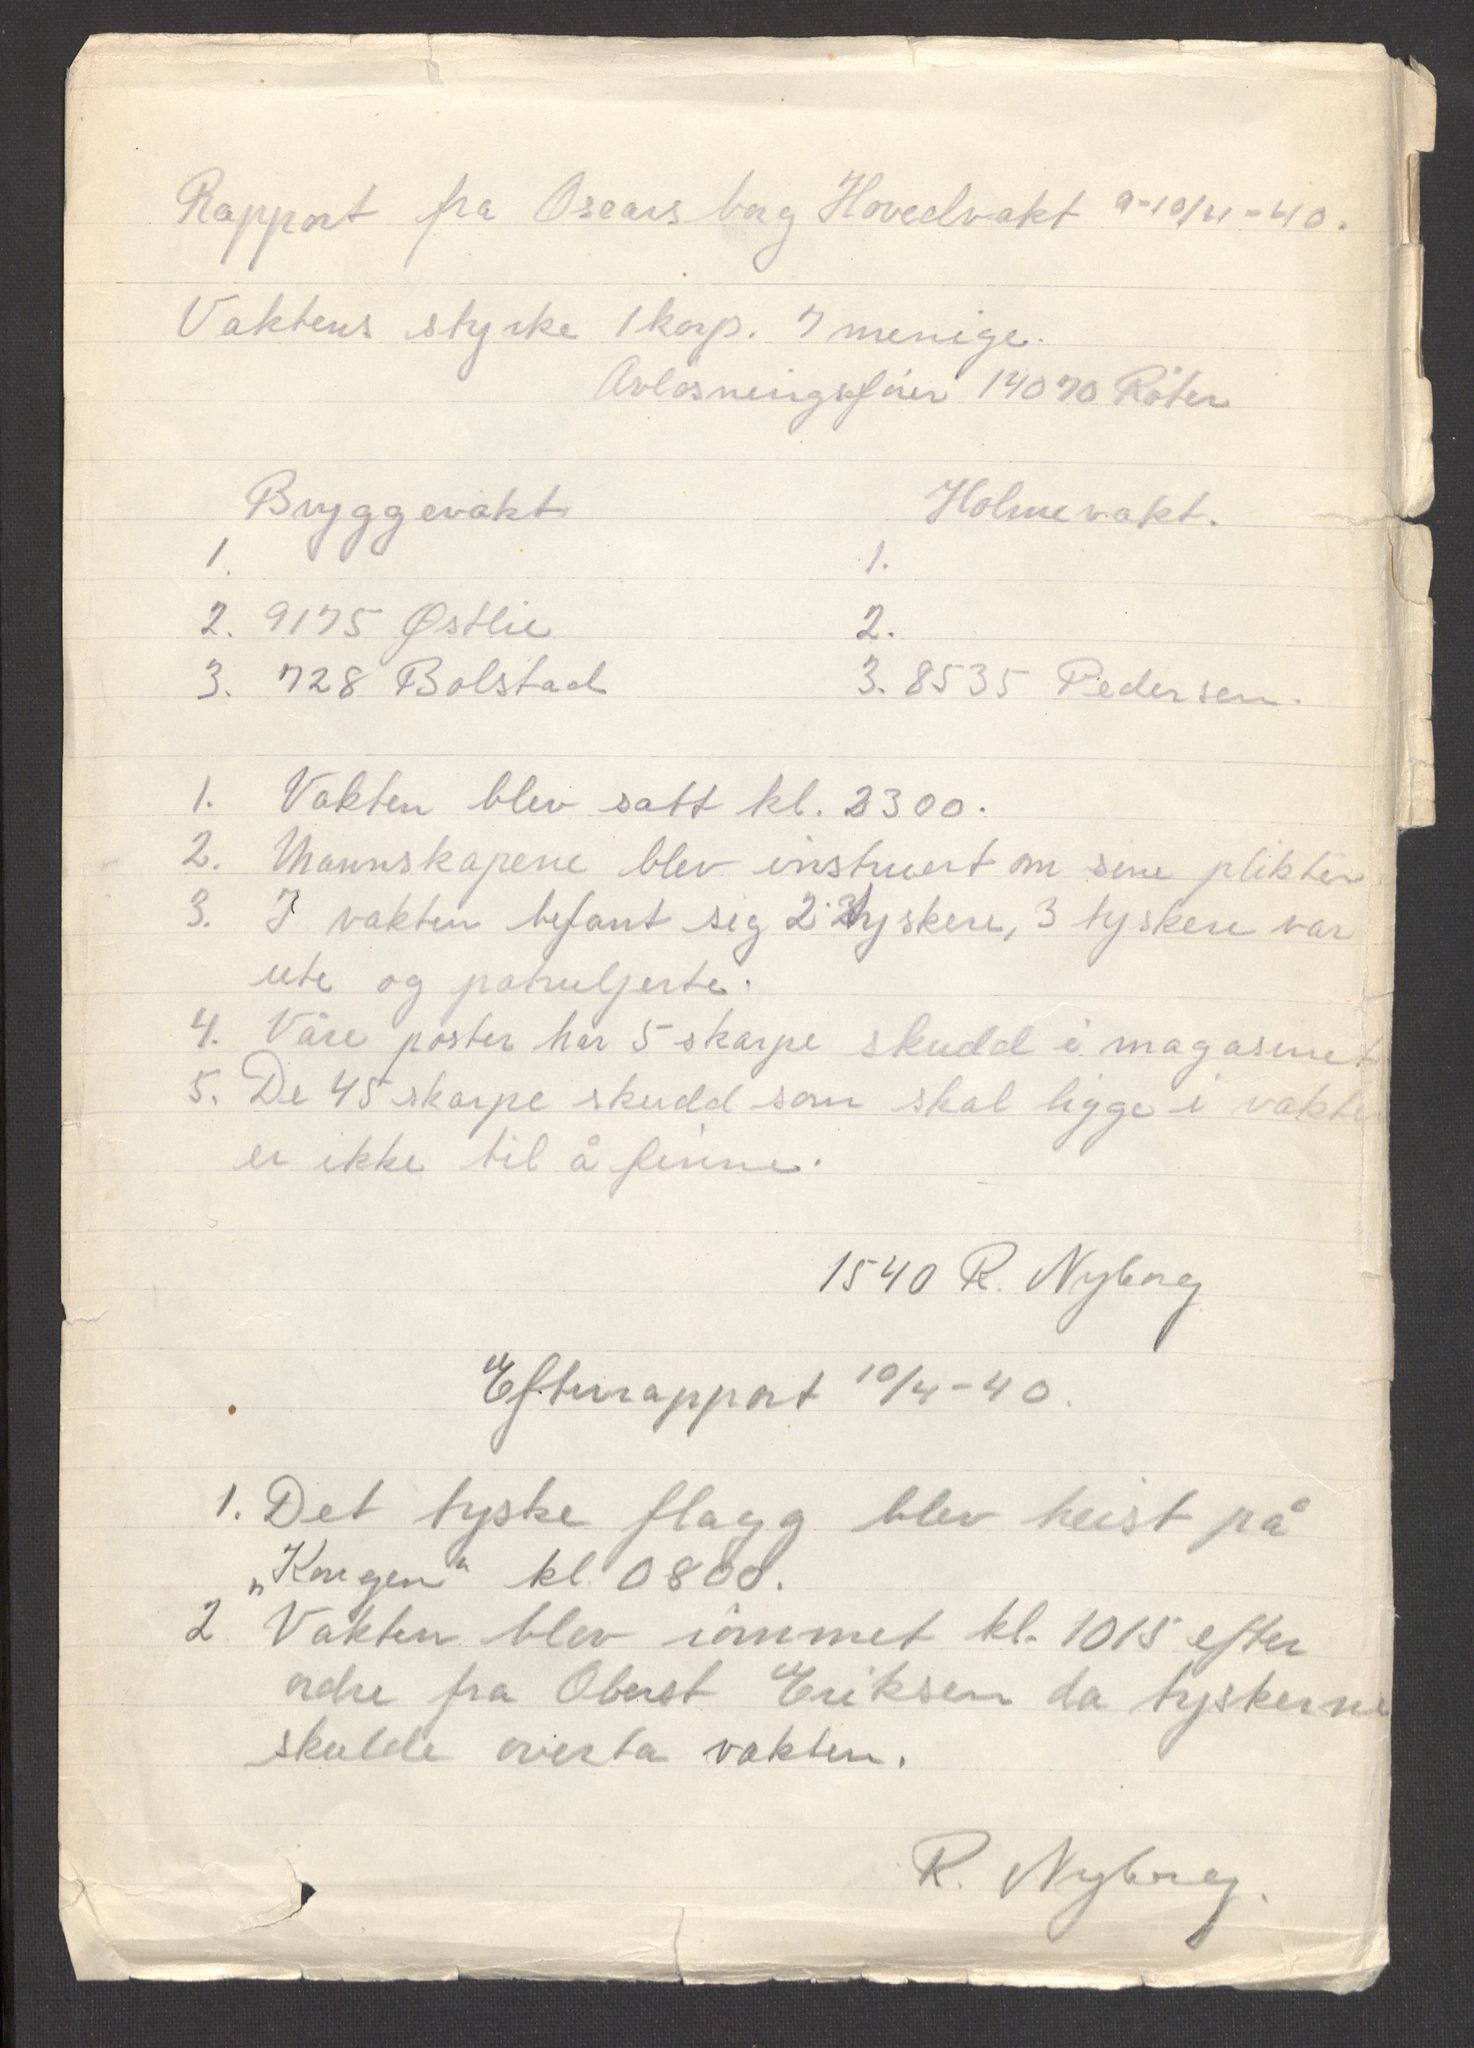 Rapport fra Oscarsborg Hovedvakt 9-10/4-40.
Vaktens styrke 1 korp. 7 menige.
Avløsningsfører 14070 Röter
Bryggevakt Holmevakt.
1. 1.
2. 9175 Østlie 2.
3. 728 Bolstad 3. 8535 Pedersen.
1. Vakten blev satt kl. 2300.
2. Mannskapene blev instruert om sine plikter
3. I vakten befant sig 2 tyskere, 3 tyskere var
ute og patruljerte.
4. Våre poster har 5 skarpe skudd i magasinet
5. De 45 skarpe skudd som skal ligge i vakten
er ikke til å finne.
1540 R. Nyborg
Efterrapport 10/4-40.
1. Det tyske flagg blev heist på
„Kongen“ kl. 0800.
2 Vakten blev römmet kl. 1015 efter
ordre fra Oberst Eriksen da tyskerne
skulde overta vakten.
R. Nyborg.